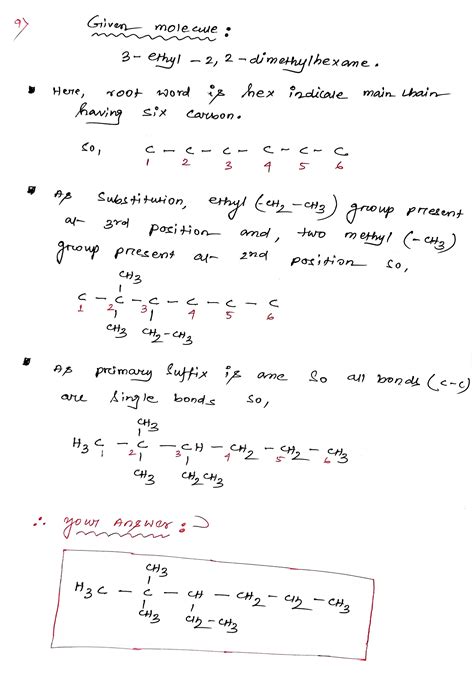 9)
Given molecule :
3 - ethyl - 2, 2 - dimethylhexane.
Here, root word is hex indicate main chain
having six carbon.
So, C - C - C - C - C - C
1 2 3 4 5 6
As Substitution, ethyl (-CH2-CH3) group present
at 3rd position and, two methyl (-CH3)
group present at 2nd position so,
CH3
C - C - C - C - C - C
1 2 3 4 5 6
CH3 CH2-CH3
As primary Suffix is ane So all bonds (C-C)
are single bonds So,
CH3
H3C - C - CH - CH2 - CH2 - CH3
1 2 3 4 5 6
CH3 CH2CH3
∴ your Answer :
CH3
H3C - C - CH - CH2 - CH2 - CH3
CH3 CH2-CH3